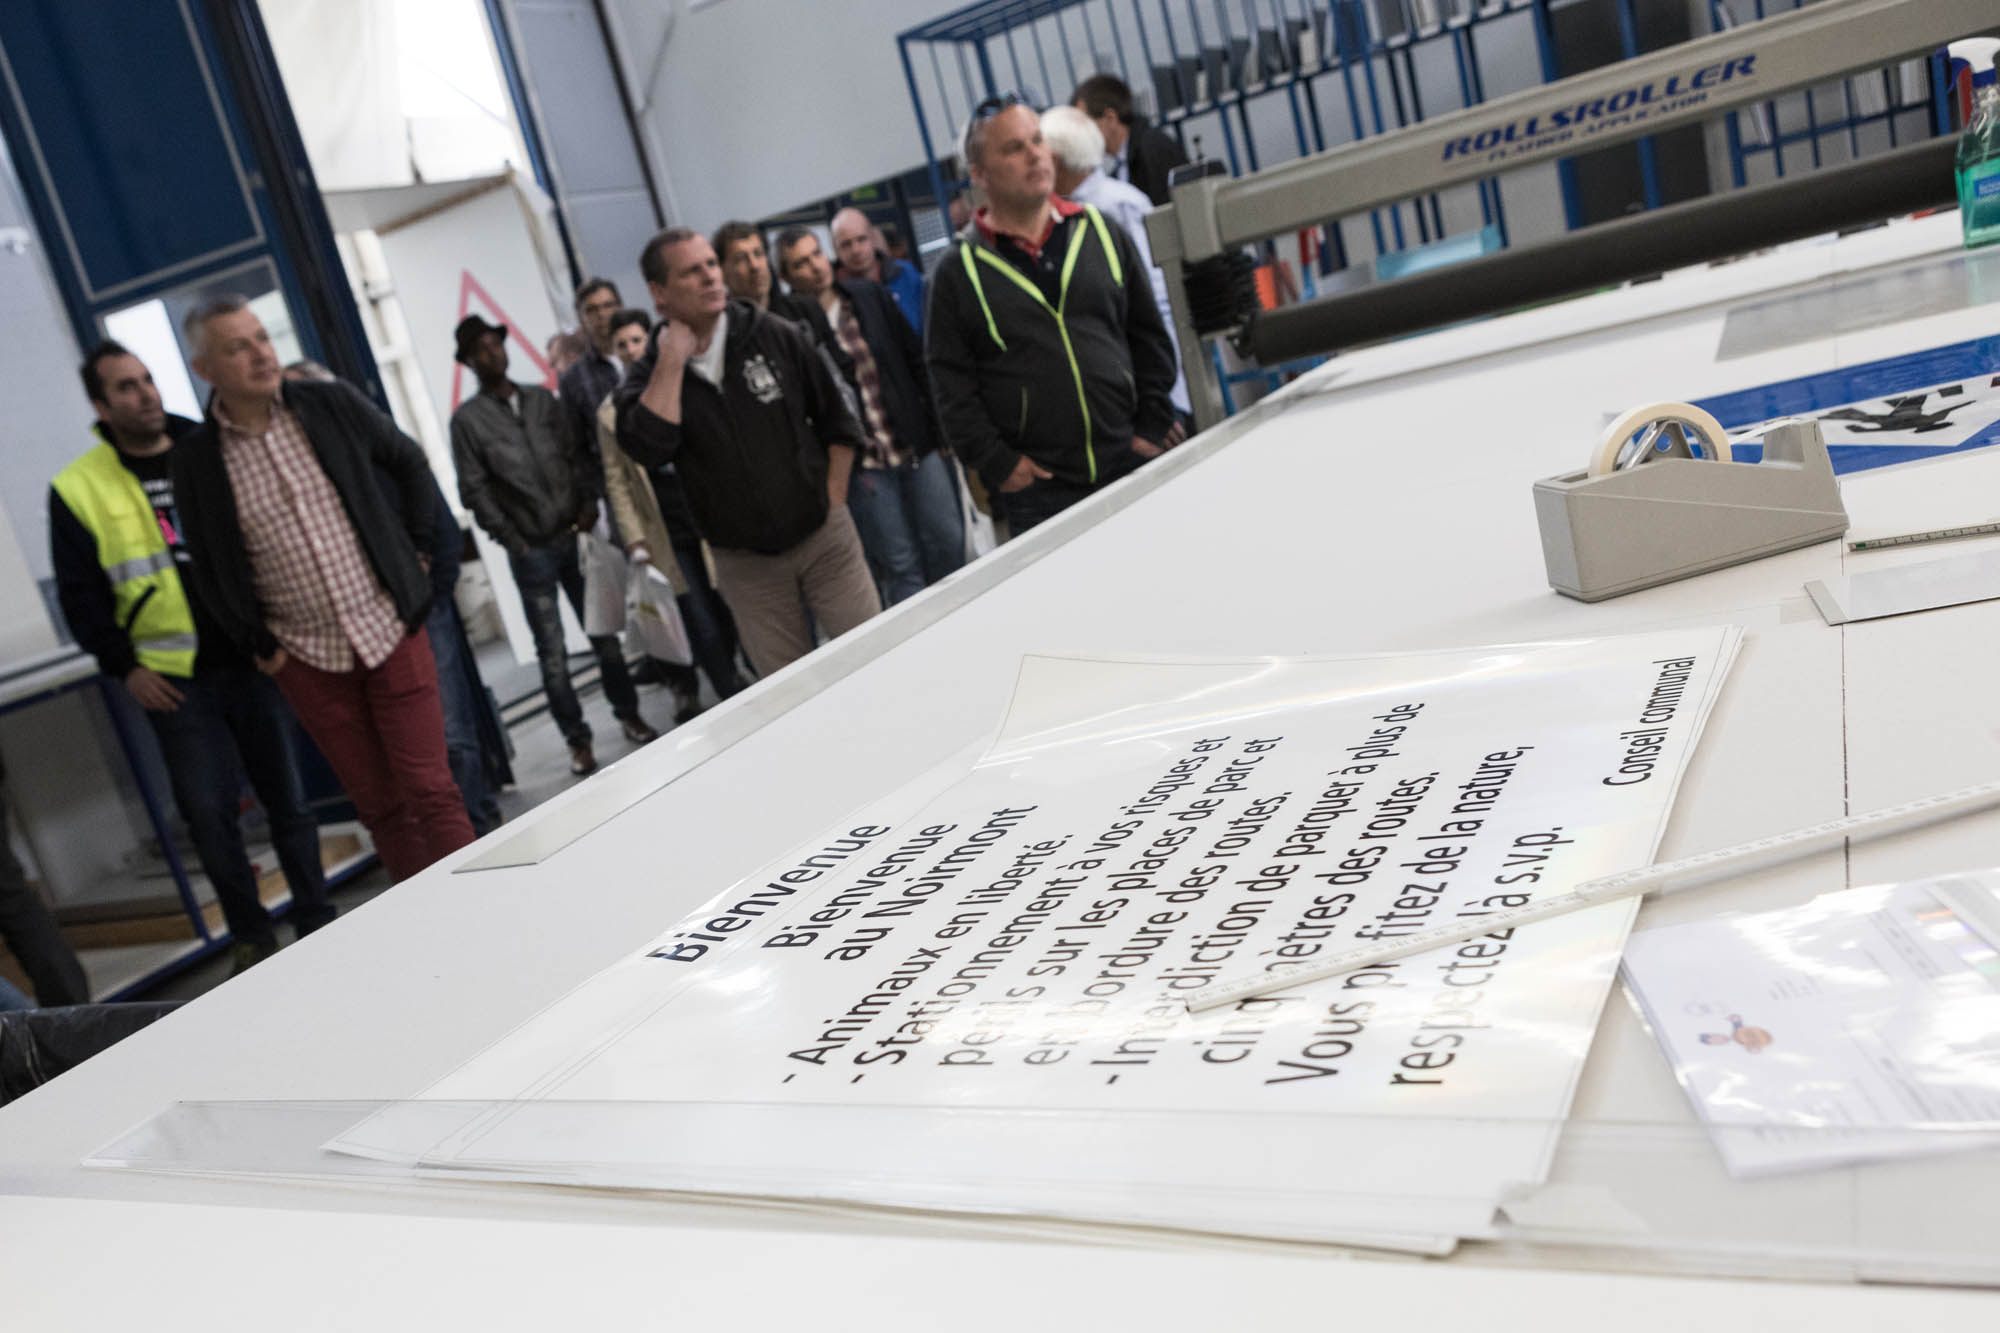 ROLLSROLLER
FLATBED APPLICATOR
Bienvenue
Bienvenue
au Noirmont
- Animaux en liberté.
- Stationnement à vos risques et
périls sur les places de parc et
en bordure des routes.
- Interdiction de parquer à plus de
cinq mètres des routes.
Vous profitez de la nature,
respectez-là s.v.p.
Conseil communal